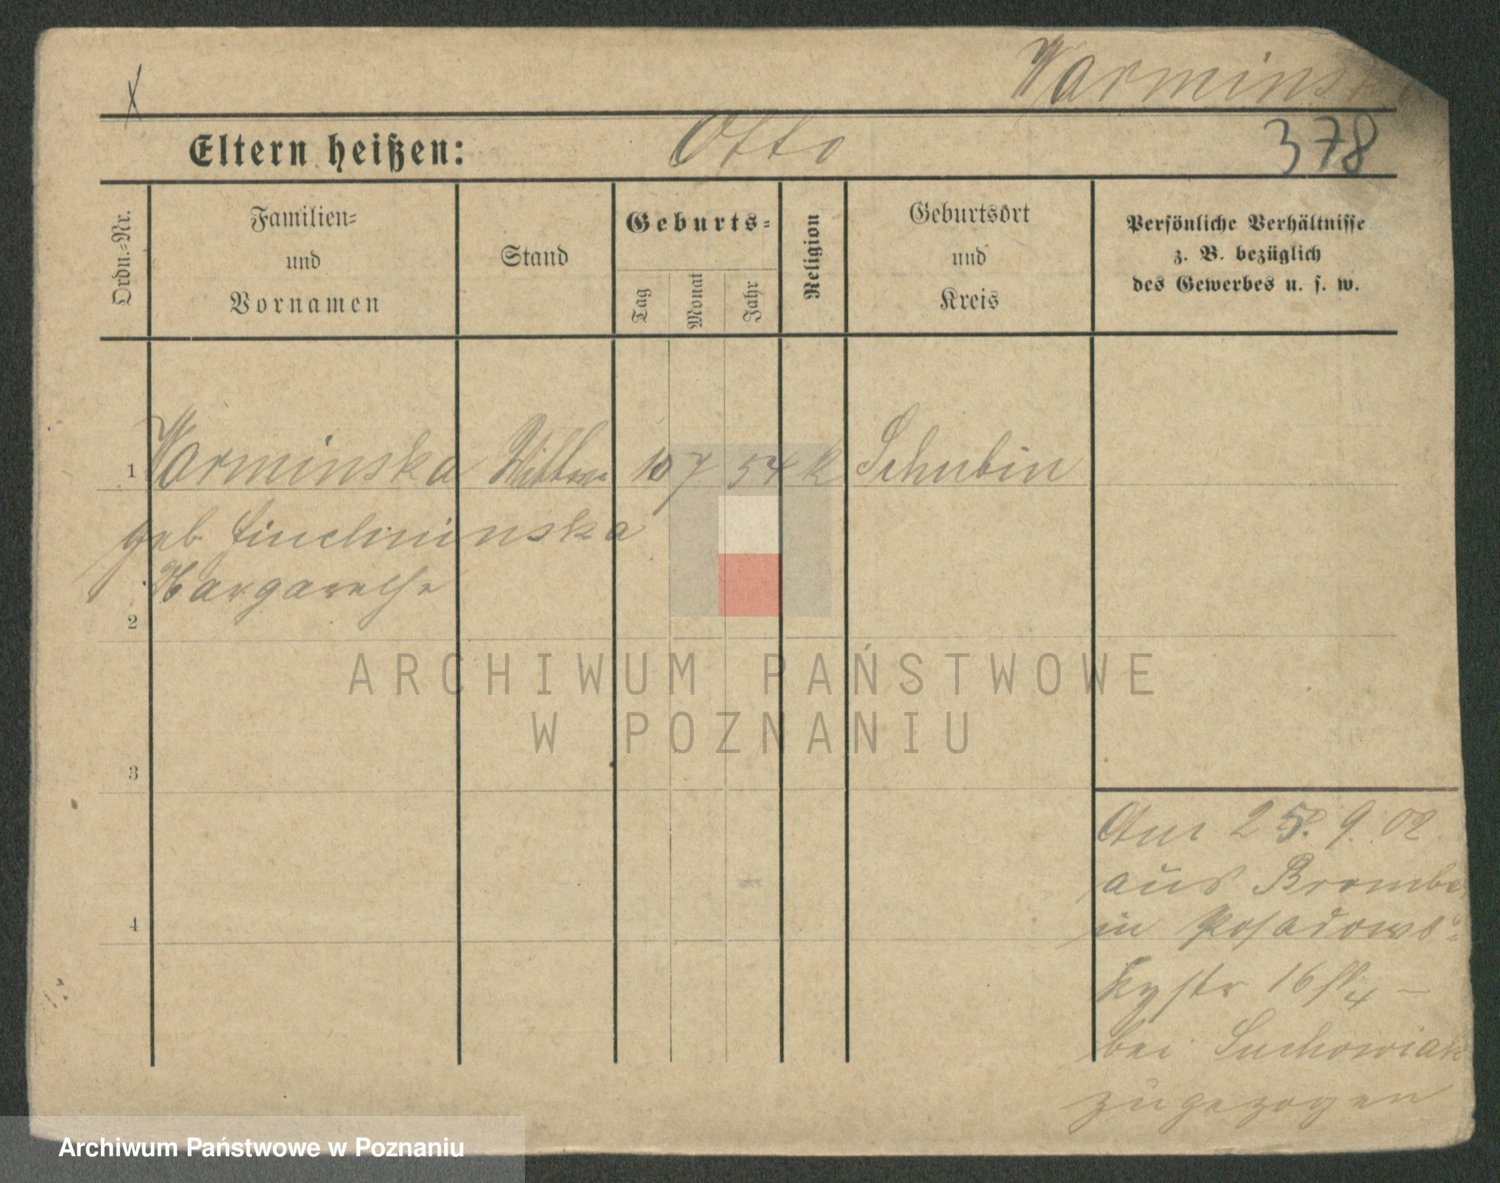 Warminsk
Eltern heißen: Otto 378
Ordn.=Nr.
Familien=
und
Vornamen
Stand
Geburts=
Tag Monat Jahr
Religion
Geburtsort
und
Kreis
Persönliche Verhältnisse
z. B. bezüglich
des Gewerbes u. s. w.
1 Warminska 10 7 54 K Schubin
geb
Margarethe
2
3
4
Am 25. 9. 02
aus Bromb
in Posadows=
kystr 16
bei Suchowiak
zugezogen
ARCHIWUM PAŃSTWOWE
W POZNANIU
Archiwum Państwowe w Poznaniu